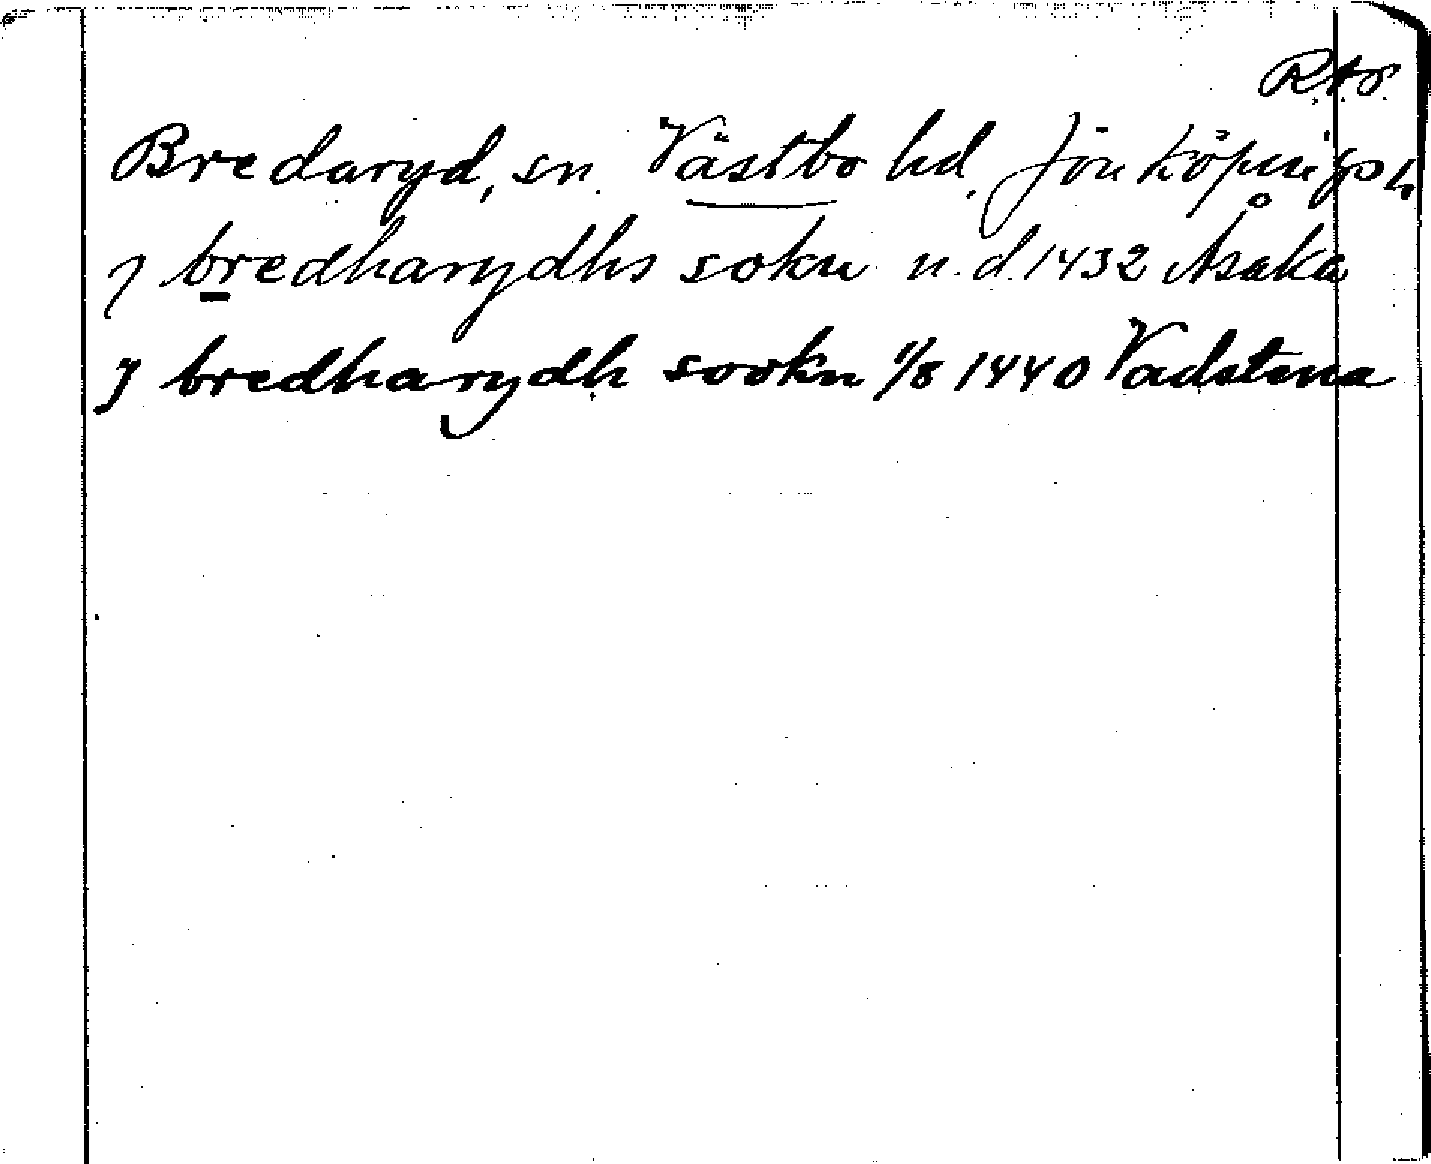 R.A.P.
Bredaryd, sn. Västbo hd. Jönköpings l.
J bredharydhs sokn u.d. 1432 Åsaka
J bredharydh sookn 1/8 1440 Vadstena